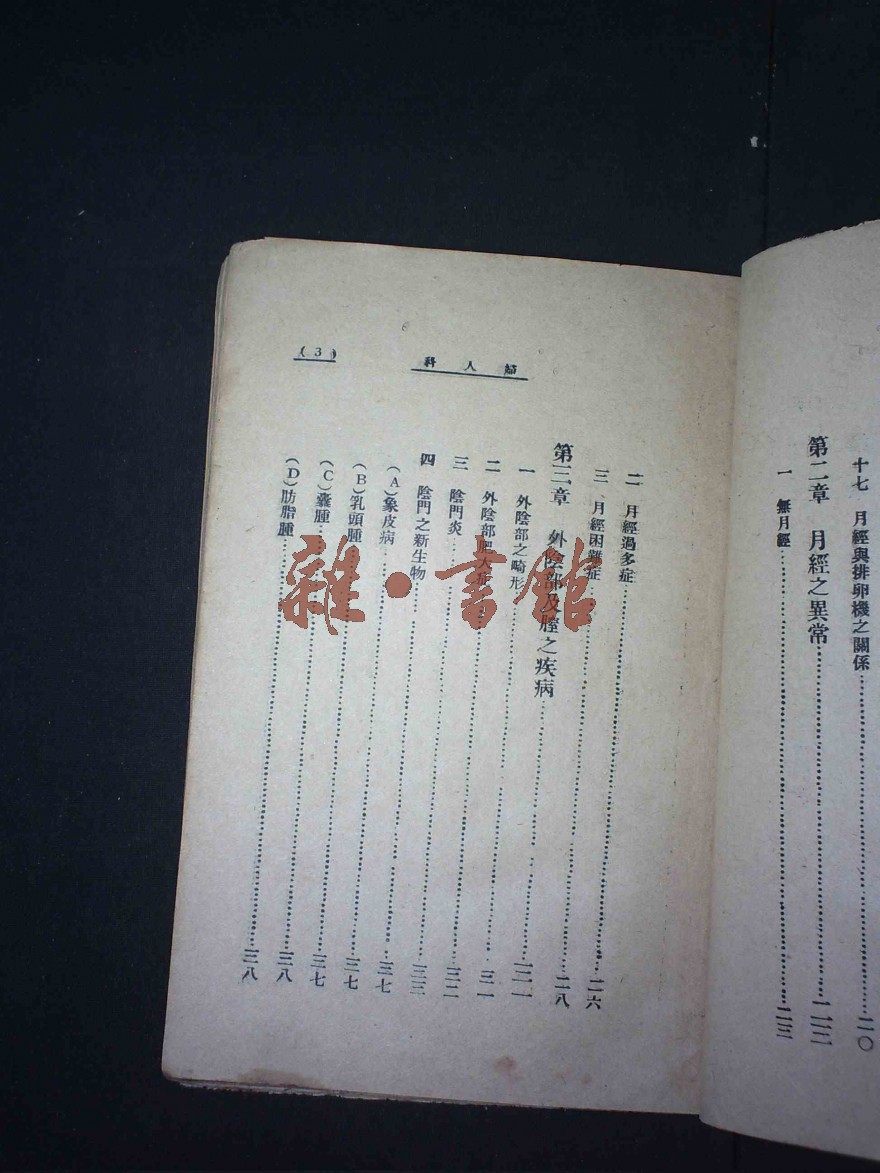 十七 月經與排卵機之關係……二〇
第二章 月經之異常……二三
一 無月經……二三
婦人科
(3)
二 月經過多症……二六
三 月經困難症……二八
第三章 外陰部及膣之疾病……三一
一 外陰部之畸形……三一
二 外陰部肥大症……三二
三 陰門炎……三三
四 陰門之新生物……三七
(A)象皮病……三七
(B)乳頭腫……三七
(C)囊腫……三八
(D)肪脂腫……三八
雜·書館